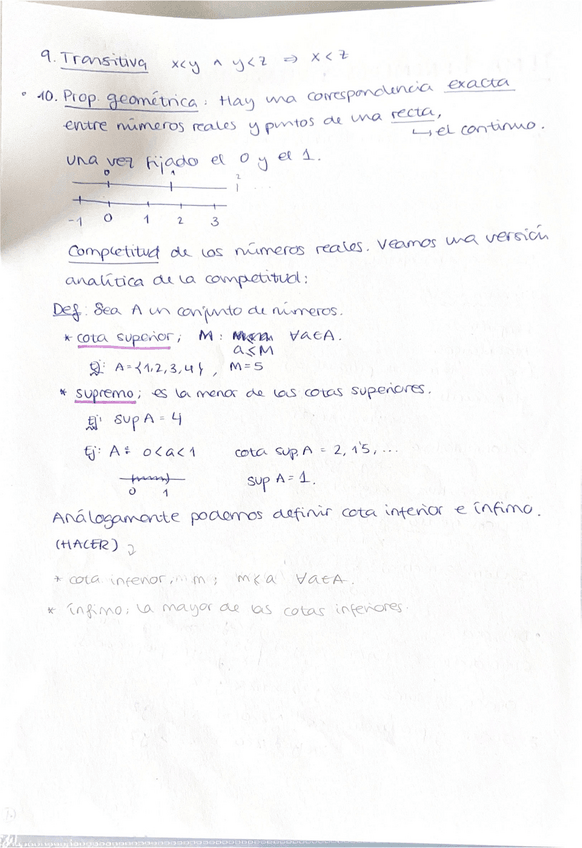 9. Transitiva x<y ∧ y<z ⇒ x<z
10. Prop. geométrica: Hay una correspondencia exacta
entre números reales y puntos de una recta,
↳ el continuo.
una vez fijado el 0 y el 1.
0 1 2
-1 0 1 2 3
Completitud de los números reales. Veamos una versión
analítica de la competitud:
Def: Sea A un conjunto de números.
* cota superior; M: ∀a∈A.
a≤M
Ej: A={1,2,3,4}, M=5
* supremo; es la menor de las cotas superiores.
Ej: sup A = 4
Ej: A: 0<a<1 cota sup. A = 2, 1'5, ...
0 1 sup A = 1.
Análogamente podemos definir cota inferior e ínfimo.
(HACER)
* cota inferior, m; m≤a ∀a∈A.
* ínfimo: la mayor de las cotas inferiores.